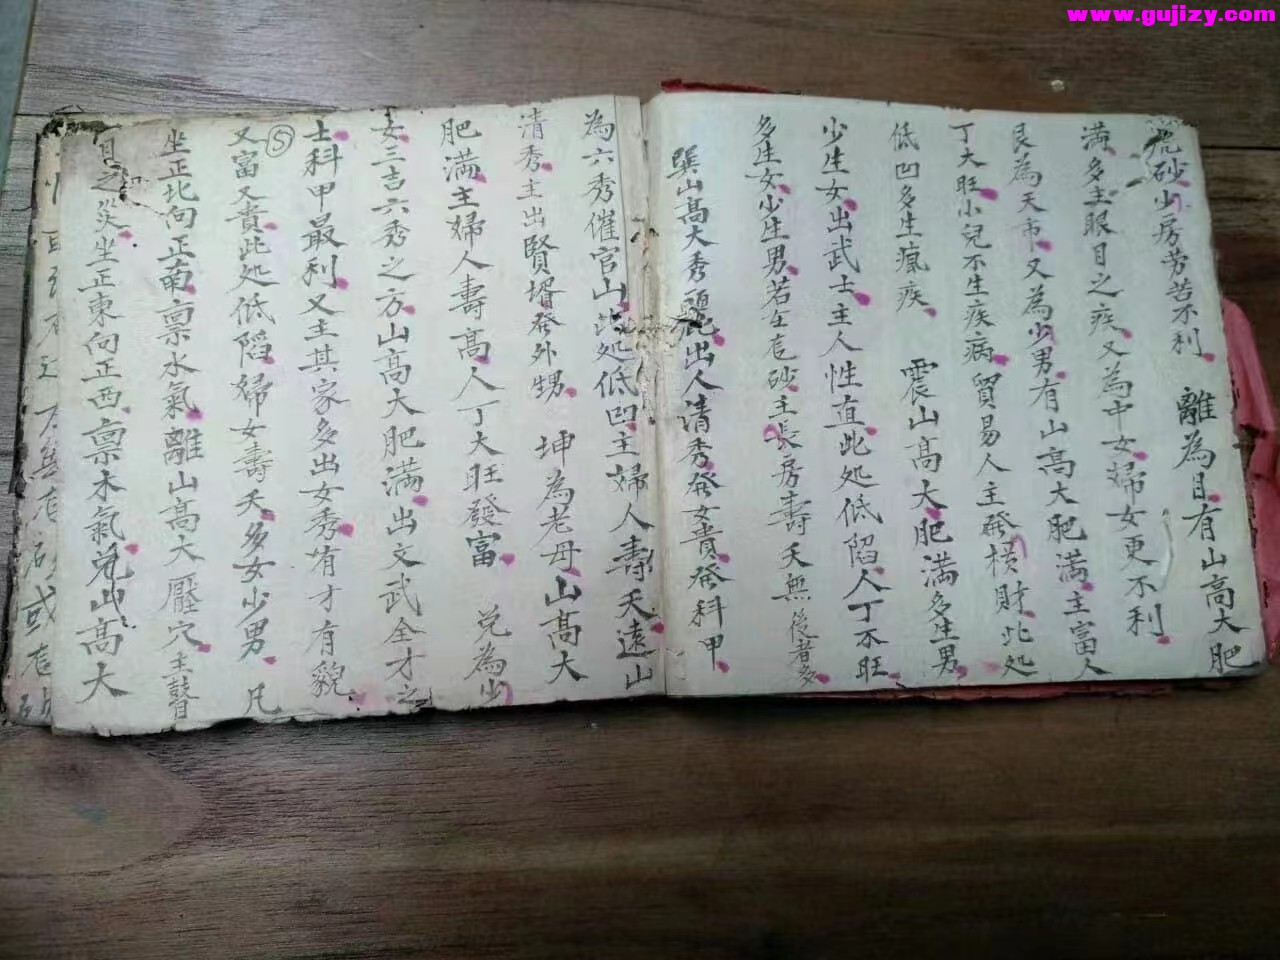 www.gujizy.com
砂少房劳苦不利 離為目有山高大肥
満多主眼目之疾又為中女婦女更不利
艮為天市又為少男有山高大肥满主富人
丁大旺小兒不生疾病貿易人主發横財此処
低凹多生瘋疾 震山高大肥满多生男
少生女出武士主人性直此処低陷人丁不旺
多生女少生男若生砂主長房壽夭無後者多
巽山高大秀麗出人清秀發女貴發科甲
為六秀催官山此処低凹主婦人壽夭遠山
清秀主出賢壻發外甥 坤為老母山高大
肥满主婦人壽高人丁大旺發富 兑為少
女三吉六秀之方山高大肥满出文武全才之
士科甲最利又主其家多出女秀有才有貌
又富又貴此処低陷婦女壽夭多女少男 凡
⑤
坐正北向正南禀水氣離山高大壓穴主瞽
目之災坐正東向正西禀木氣兑山高大